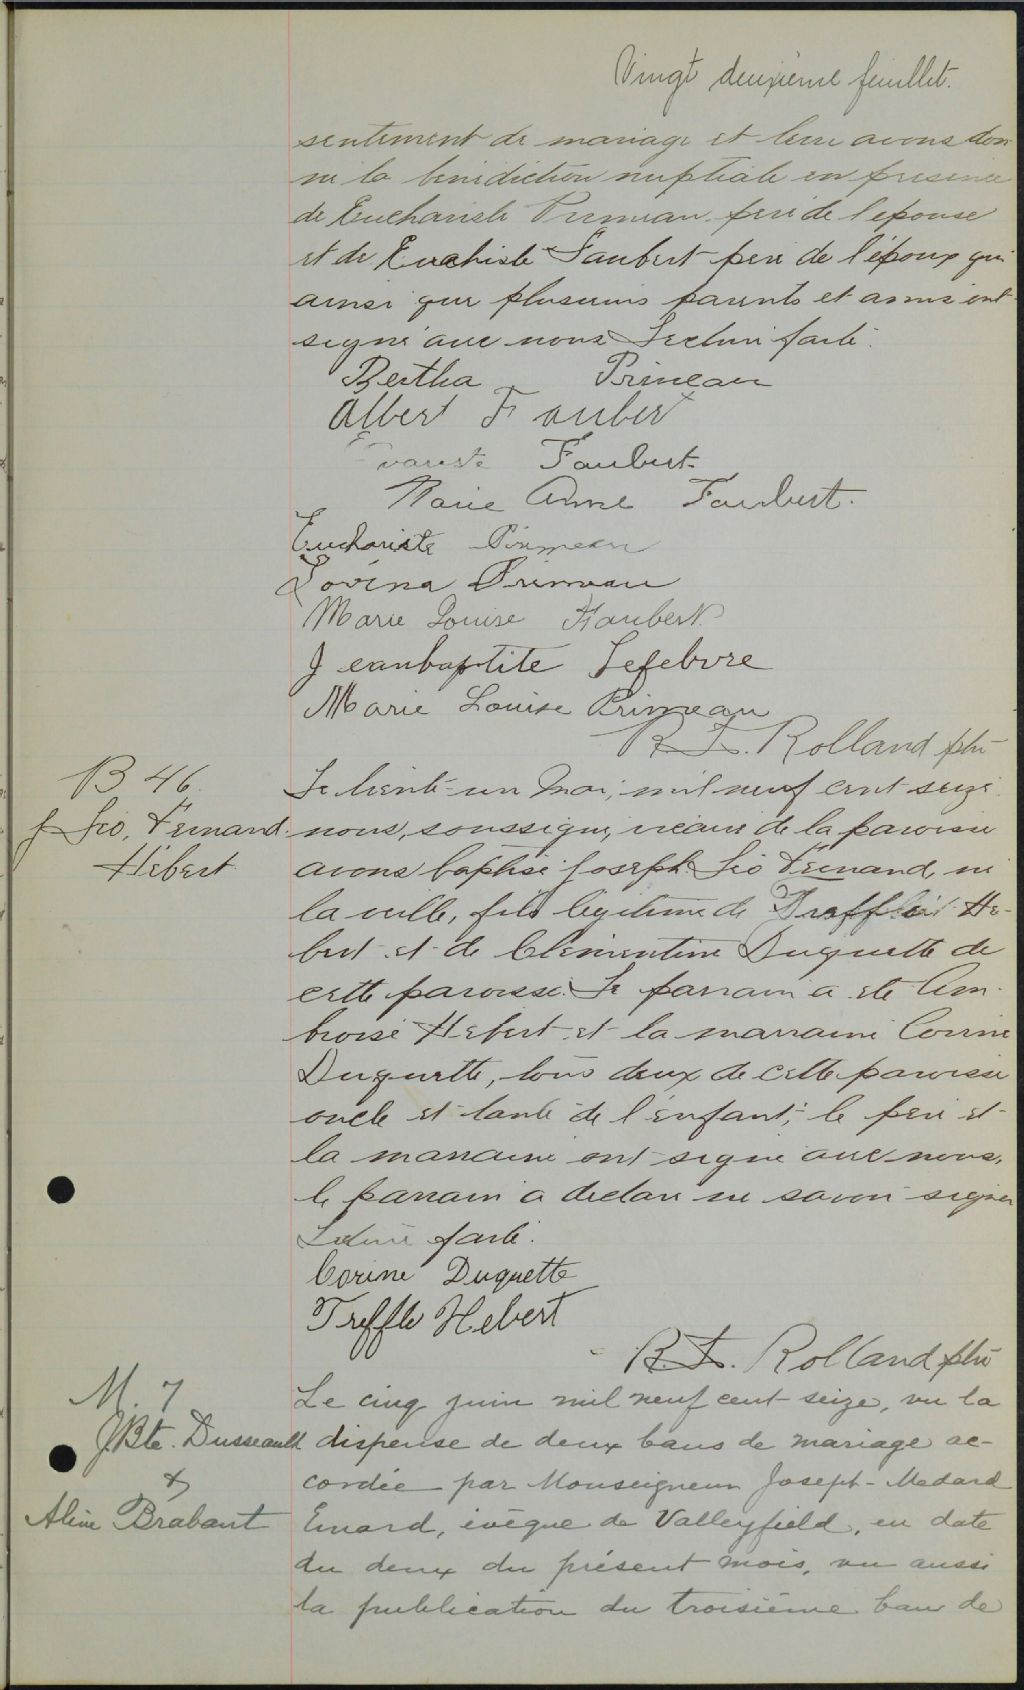 Vingt deuxième feuillet.
sentiment de mariage et leur avons don-
né la bénédiction nuptiale en présence
de Euchariste Primeau père de l'épouse
et de Evariste Faubert père de l'époux qui
ainsi que plusieurs parents et amis ont
signé avec nous Lecture faite.
Bertha Primeau
Albert Faubert
Evariste Faubert
Marie Anne Faubert.
Euchariste Primeau
Lovina Primeau
Marie Louise Faubert
Jeanbaptite Lefebvre
Marie Louise Primeau
R. L. Rolland ptre
B 46.
J Léo, Fernand
Hébert
Le trente-un Mai, mil neuf cent seize
nous, soussigné, vicaire de la paroisse
avons baptisé Joseph Léo Fernand, né
la veille, fils légitime de Treffle Hé-
bert et de Clémentine Duquette de
cette paroisse. Le parrain a été Am-
broise Hébert et la marraine Corine
Duquette, tous deux de cette paroisse
oncle et tante de l'enfant; le père et
la marraine ont signé avec nous,
le parrain a déclaré ne savoir signer
Lecture faite.
Corine Duquette
Treffle Hebert
R. L. Rolland ptre
M. 7
J. Bte. Dusseault
&
Aline Brabant
Le cinq juin mil neuf cent seize, vu la
dispense de deux bans de mariage ac-
cordée par Monseigneur Joseph-Medard
Emard, évêque de Valleyfield, en date
du deux du présent mois, vu aussi
la publication du troisième ban de